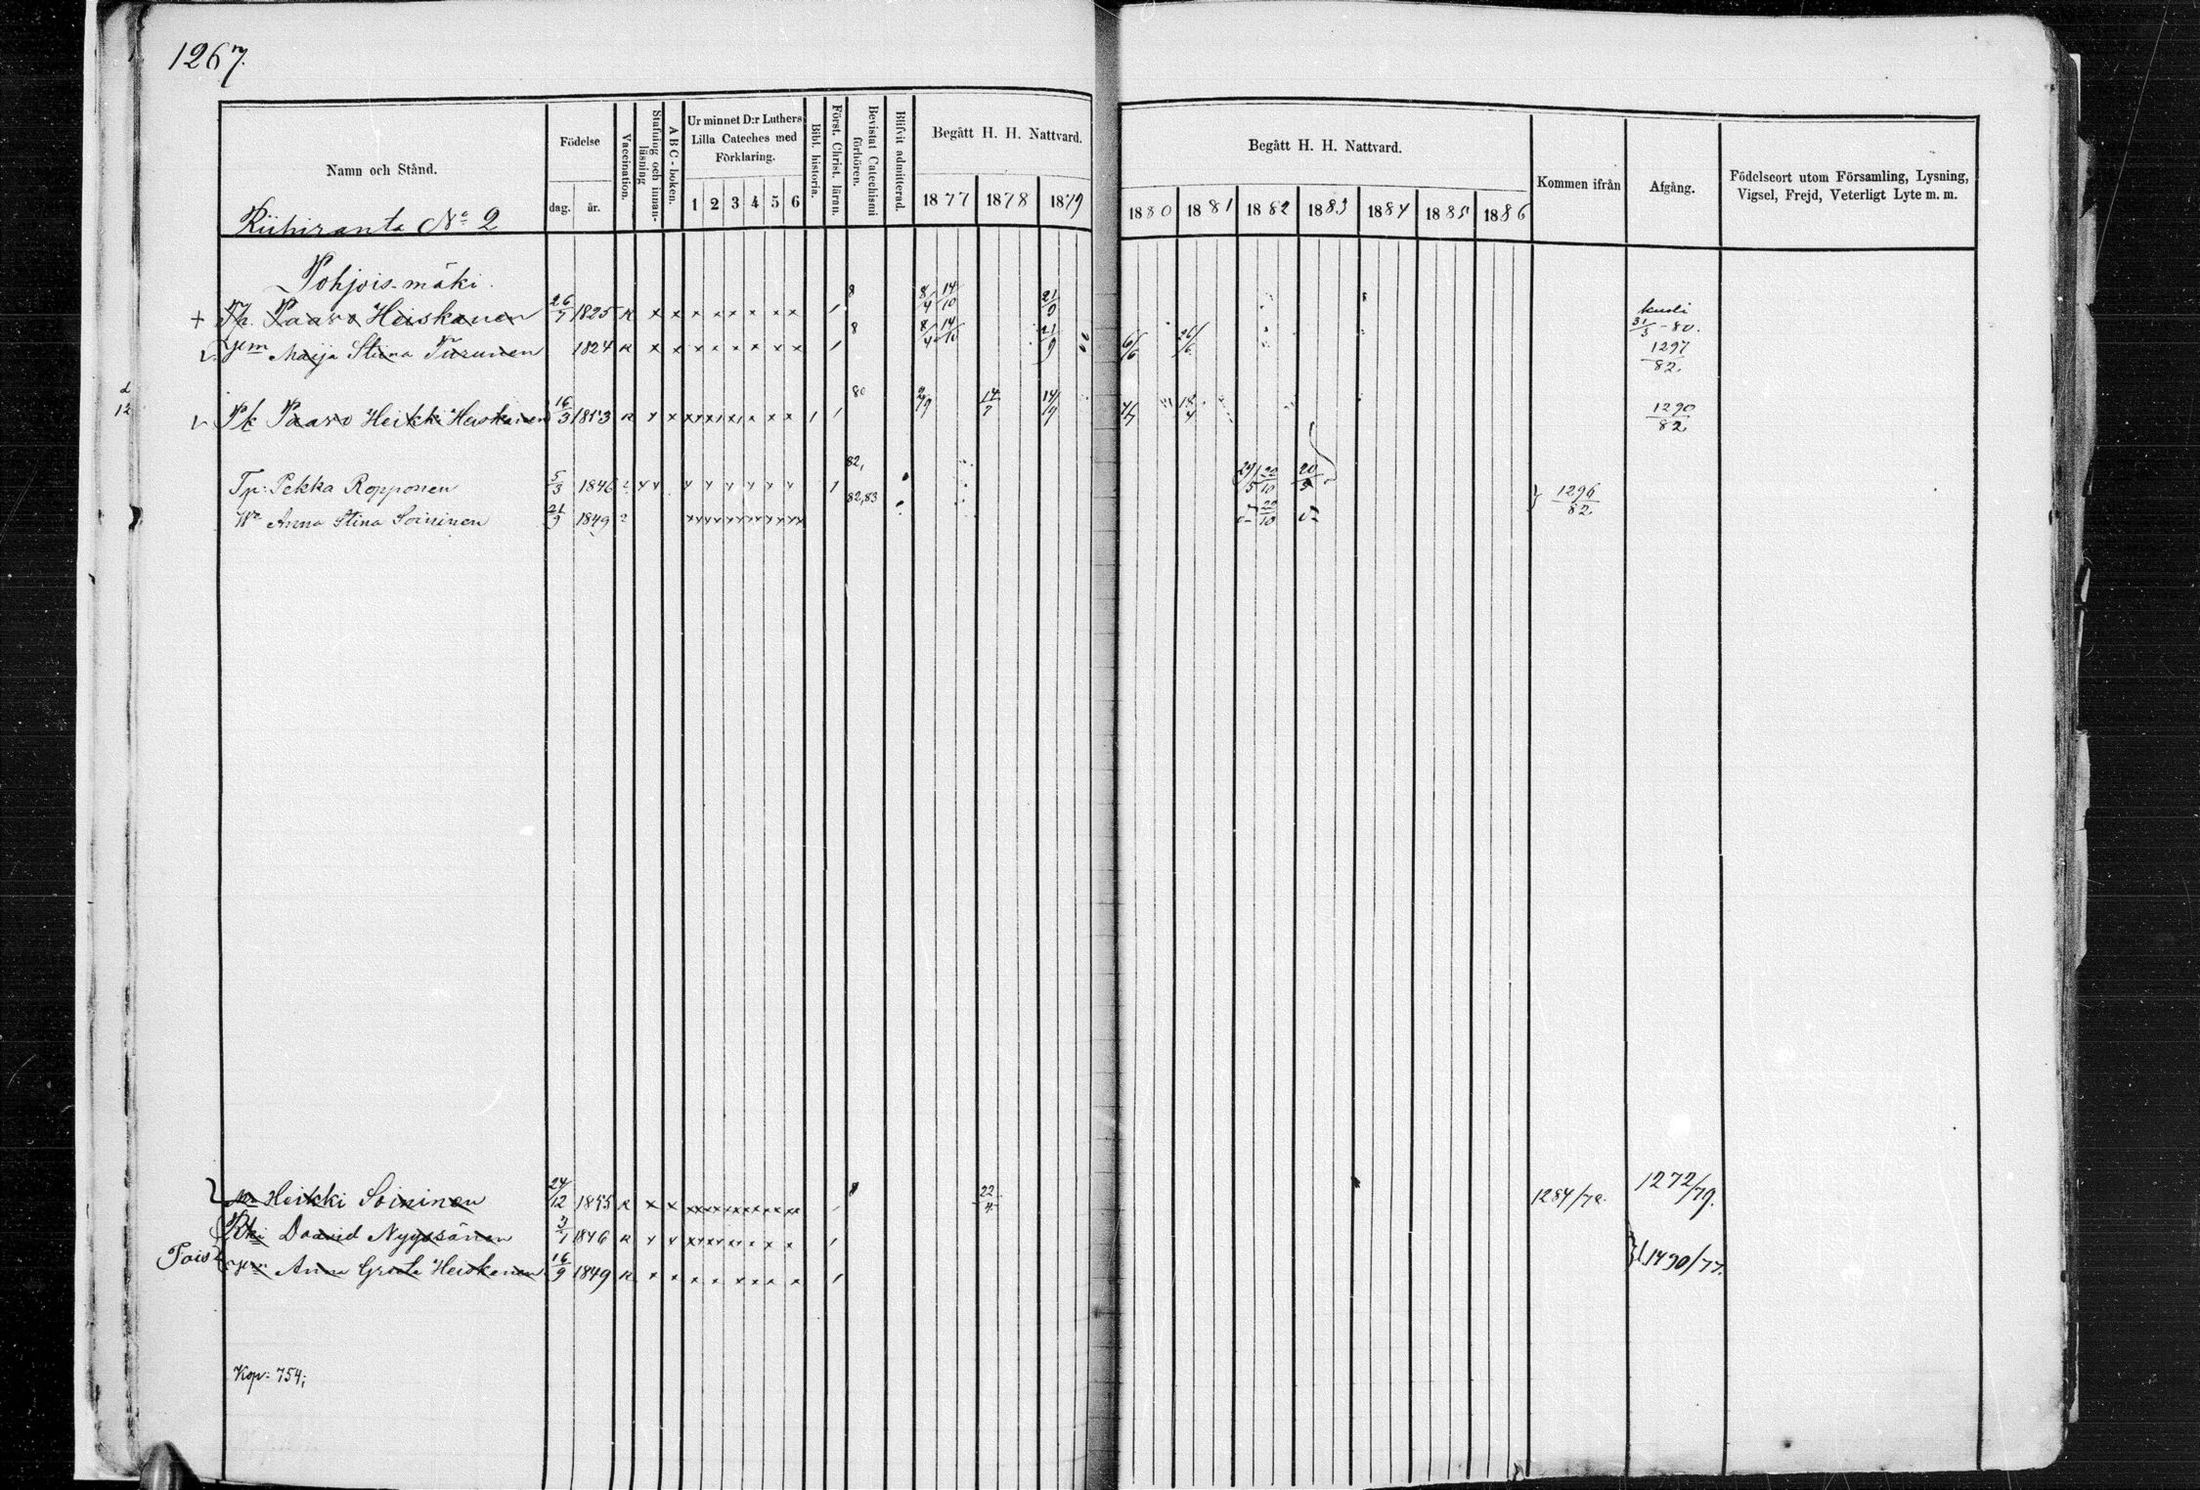 1267.
Namn och Stånd.
Födelse
dag.
år.
Vaccination.
Stafning och innan-läsning
ABC-boken.
Ur minnet D:r Luthers
Lilla Cateches med
Förklaring.
1 2 3 4 5 6
Bibl. historia.
Först. Christ. läran.
Bevistat Catechismi förhören.
Blifvit admitterad.
Begått H. H. Nattvard.
1877 1878 1879
Begått H. H. Nattvard.
1880 1881 1882 1883 1884 1885 1886
Kommen ifrån
Afgång.
Födelseort utom Församling, Lysning,
Vigsel, Frejd, Veterligt Lyte m. m.
Riihiranta No 2
Pohjois-mäki.
+ Tp. Paavo Heiskanen 26/7 1825 R x x x x x x x x / 8 8/4 14/10 21/9 kuoli 31/3-80.
Maija Stiina Turunen 1824 R x x x x x x x x / 8 8/4 14/10 21/9 6/6 26/6 1297/82.
Pk Paavo Heikki Heiskanen 16/3 1853 R 80 14/7 14/9 18/4 1290/82
Tp: Pekka Ropponen 5/3 1846 82, 20/10 20/5 1296/82
Wo Anna Stina Soininen 21/9 1849 82,83 20/10
Heikki Soininen 24/12 1855 R 22/4 1284/78. 1272/79.
Rki Daavid Nyyssönen 3/1 1846 R x x x x x x /
Tois Anna Greeta Heiskanen 16/9 1849 R x x x x x x x x / 1490/77.
Kop: 754;